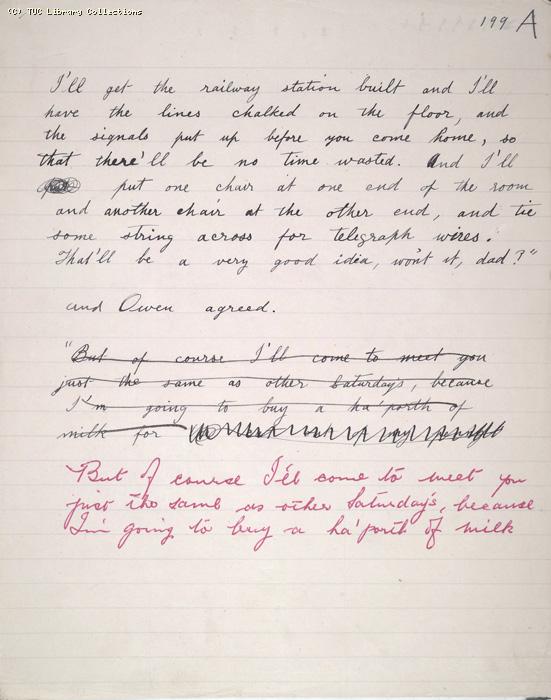 (C) TUC Library Collections
199 A
I'll get the railway station built and I'll
have the lines chalked on the floor, and
the signals put up before you come home, so
that there'll be no time wasted. And I'll
put one chair at one end of the room
and another chair at the other end, and tie
some string across for telegraph wires.
That'll be a very good idea, won't it, dad?"
and Owen agreed.
"But of course I'll come to meet you
just the same as other Saturday's, because
I'm going to buy a ha'porth of
milk for
"But of course I'll come to meet you
just the same as other Saturday's, because
I'm going to buy a ha'porth of milk